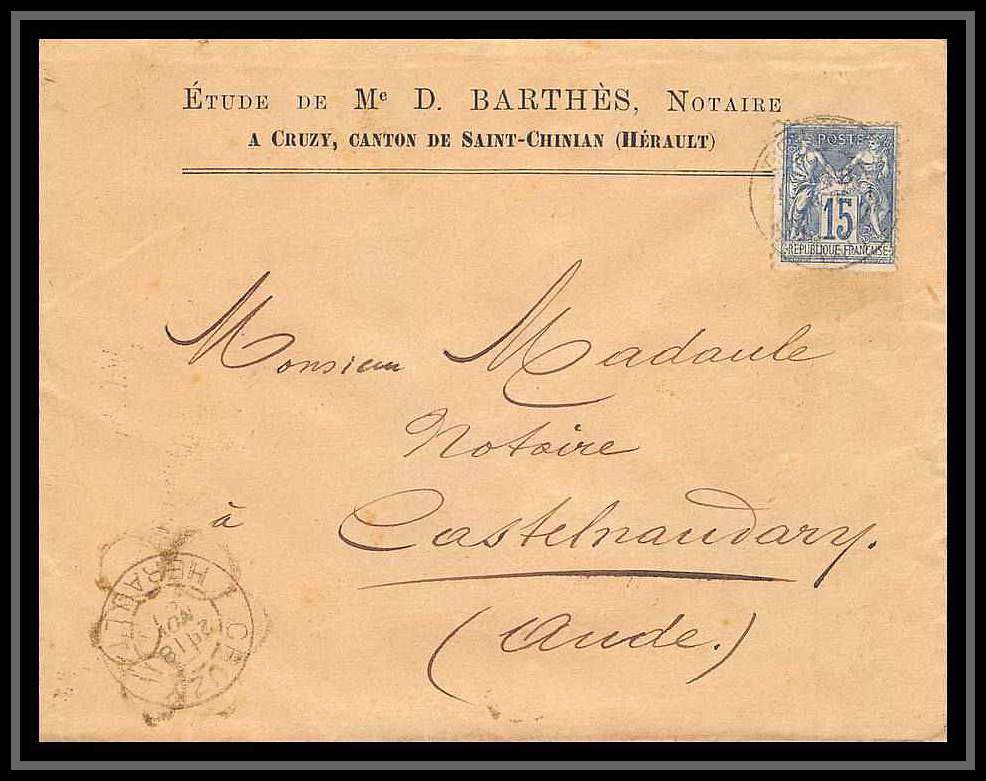 ÉTUDE DE Me D. BARTHÈS, NOTAIRE
A CRUZY, CANTON DE SAINT-CHINIAN (HÉRAULT)
POSTE
15
REPUBLIQUE FRANÇAISE
Monsieur Madaule
Notaire
à Castelnaudary.
(Aude.)
CRUZY
HERAULT
NOV